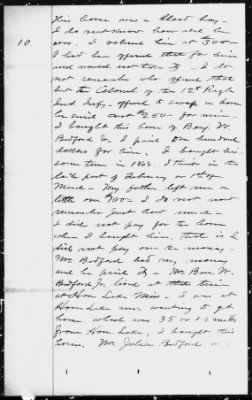 10.
His horse was a blood bay.
I do not know how old he
was. I valued him at $300—
I had been offered that for him
and would not take it. I do
not remember who offered that
but the Colonel of the 12th Regt
Ind. Infy. offered to swap a horse
he said cost $250— for mine—
I bought this horse of Benj. W.
Bedford Jr. I paid One hundred
dollars for him. I bought him
some time in 1863. I think in the
latter part of February or 1st of
March— My father left me a
little over $100— I do not now
remember just how much—
I did not pay for the horse
when I bought him, that is I
did not pay over the money.
Mr. Bedford had my money
and he paid it— Mr. Ben. W.
Bedford Jr. lived at that time
at Horn Lake Miss.— I was at
Horn Lake and wanting to get
home which was 35 miles
from Horn Lake, I bought this
horse. Mr. Julian Bedford